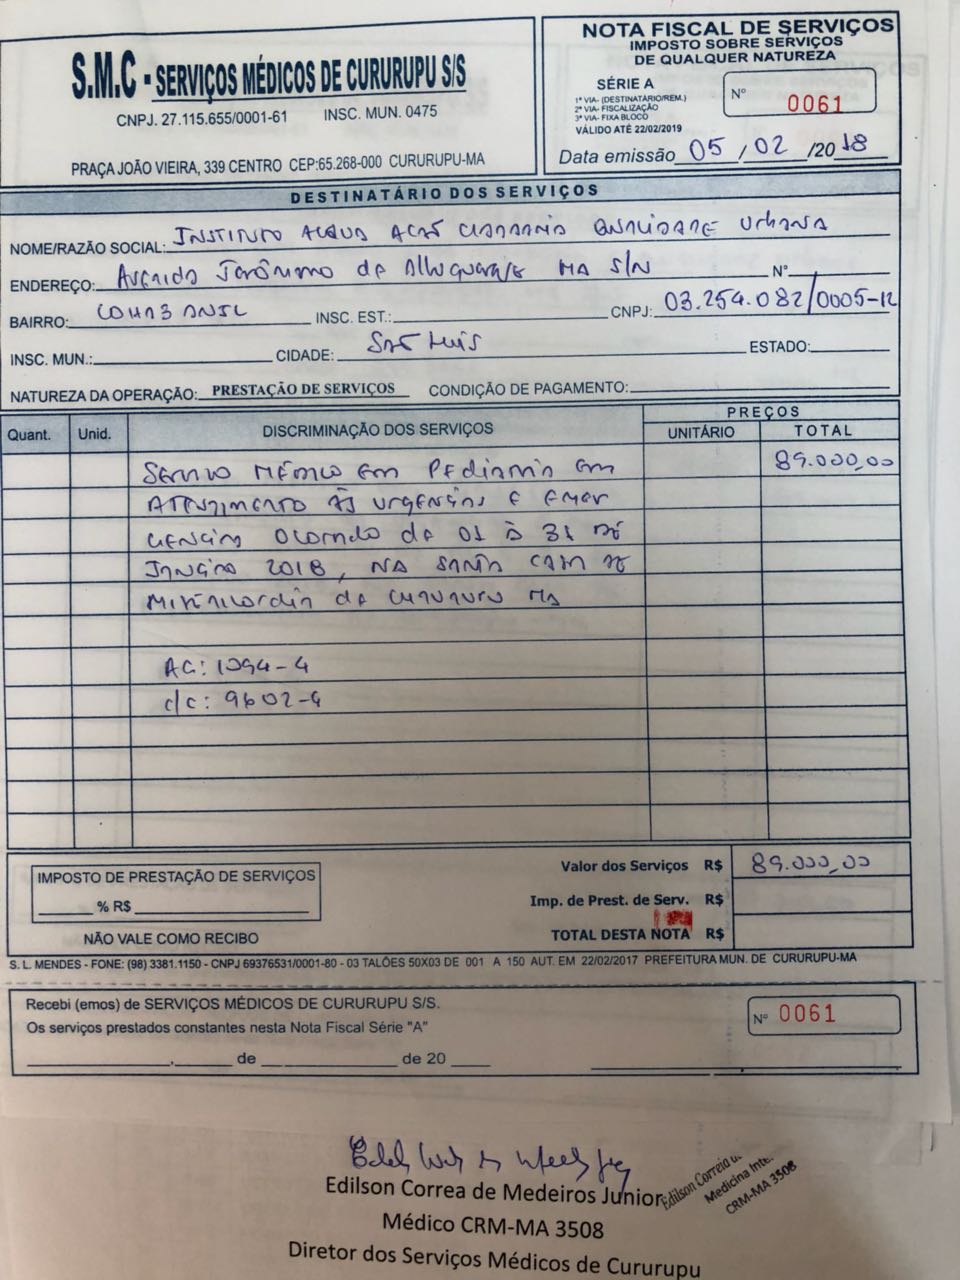 S.M.C - SERVIÇOS MÉDICOS DE CURURUPU S/S
CNPJ. 27.115.655/0001-61 INSC. MUN. 0475
PRAÇA JOÃO VIEIRA, 339 CENTRO CEP:65.268-000 CURURUPU-MA
NOTA FISCAL DE SERVIÇOS
IMPOSTO SOBRE SERVIÇOS
DE QUALQUER NATUREZA
SÉRIE A
1ª VIA- (DESTINATÁRIO/REM.)
2ª VIA- FISCALIZAÇÃO
3ª VIA- FIXA BLOCO
VÁLIDO ATÉ 22/02/2019
Nº 0061
Data emissão 05/02/2018
DESTINATÁRIO DOS SERVIÇOS
NOME/RAZÃO SOCIAL: INSTITUTO ACQUA AÇÃO CIDADANIA QUALIDADE URBANA
ENDEREÇO: Avenida Jerônimo de Albuquerque MA S/N Nº
BAIRRO: COHAB ANIL INSC. EST.: CNPJ: 03.254.082/0005-12
INSC. MUN.: CIDADE: São Luis ESTADO:
NATUREZA DA OPERAÇÃO: PRESTAÇÃO DE SERVIÇOS CONDIÇÃO DE PAGAMENTO:
Quant. Unid. DISCRIMINAÇÃO DOS SERVIÇOS PREÇOS
UNITÁRIO TOTAL
SERVIÇO MÉDICO EM PEDIATRIA EM 89.000,00
ATENDIMENTO ÀS URGÊNCIAS E EMER
GENCIAS OCORRIDO DE 01 À 31 DE
JANEIRO 2018, NA SANTA CASA DE
MISERICORDIA DE CURURUPU MA
AG: 1094-4
C/C: 9602-4
IMPOSTO DE PRESTAÇÃO DE SERVIÇOS
% R$
NÃO VALE COMO RECIBO
Valor dos Serviços R$ 89.000,00
Imp. de Prest. de Serv. R$
TOTAL DESTA NOTA R$
S. L. MENDES - FONE: (98) 3381.1150 - CNPJ 69376531/0001-80 - 03 TALÕES 50X03 DE 001 A 150 AUT. EM 22/02/2017 PREFEITURA MUN. DE CURURUPU-MA
Recebi (emos) de SERVIÇOS MÉDICOS DE CURURUPU S/S.
Os serviços prestados constantes nesta Nota Fiscal Série "A"
de de 20
Nº 0061
Edilson Correa de Medeiros Junior
Médico CRM-MA 3508
Diretor dos Serviços Médicos de Cururupu
Edilson Correia
Medicina
CRM-MA 3508